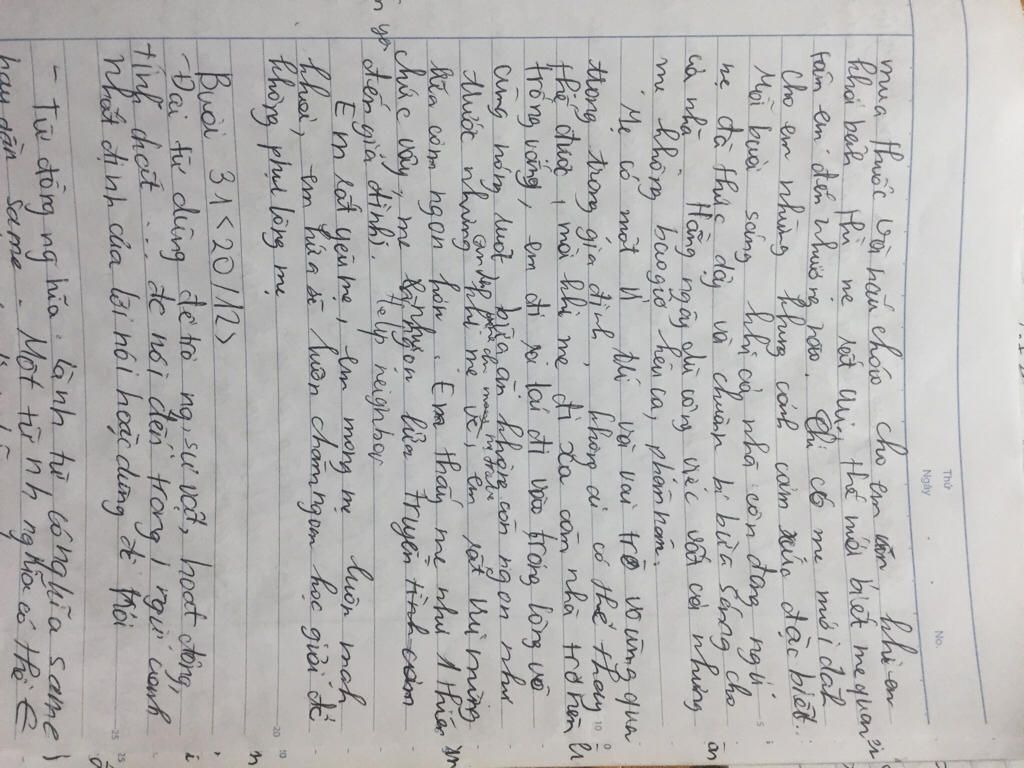 Thứ
Ngày
No.
mua thuốc và nấu cháo cho em ăn khi em
khỏi bệnh thì mẹ rất vui, thế mới biết mẹ quan
tâm em đến nhường nào. Chỉ có mẹ mới dành
cho em những khung cảnh cảm xúc đặc biệt.
Mỗi buổi sáng khi cả nhà còn đang ngủ
mẹ đã thức dậy và chuẩn bị bữa sáng cho
cả nhà. Hằng ngày dù công việc vất vả nhưng
mẹ không bao giờ kêu ca, phàn nàn.
Mẹ có một vị thế và vai trò vô cùng qua
trong trong gia đình, không ai có thể thay
thế được, mỗi khi mẹ đi xa căn nhà trở nên
trống vắng, em đi ra lại đi vào trong lòng vô
cùng nóng ruột, bữa ăn không còn ngon như
trước nhưng khi mẹ về, em rất vui mừng
bữa cơm ngon hơn. Em thấy mẹ như 1 thứ
chúc vậy, mẹ truyền
đến gia đình. Help neighbor
Em rất yêu mẹ, em mong mẹ luôn mạnh
khoẻ, em hứa sẽ luôn chăm ngoan học giỏi để
không phụ lòng mẹ
Buổi 31 <20/12>
- Đại từ dùng để trỏ ng, sự vật, hoạt động,
tính chất ... đc nói đến trong 1 ngữ cảnh
nhất định của lời nói hoặc dùng để hỏi
- Từ đồng nghĩa: là nh từ có nghĩa same
hay gần same. Một từ nh nghĩa có thể ∈